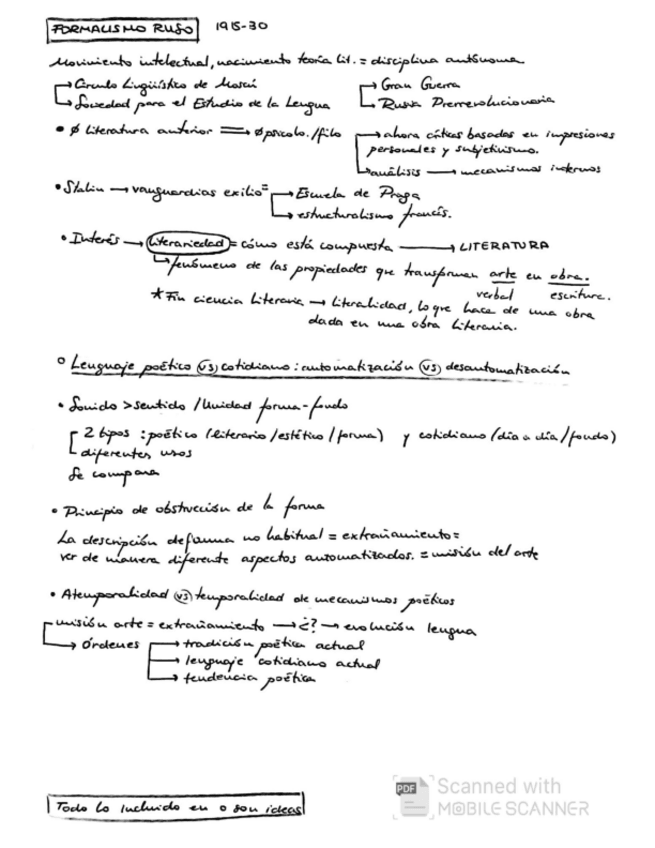 FORMALISMO RUSO 1915-30
Movimiento intelectual, nacimiento teoría lit. = disciplina autónoma
→ Círculo Lingüístico de Moscú → Gran Guerra
→ Sociedad para el Estudio de la Lengua → Rusia Prerrevolucionaria
• ∅ literatura anterior ⟹ ∅ psicolo./filo → ahora críticas basadas en impresiones
personales y subjetivismo.
→ análisis → mecanismos internos
• Stalin → vanguardias exilio = → Escuela de Praga
→ estructuralismo francés.
• Interés → literariedad = cómo está compuesta → LITERATURA
→ fenómeno de las propiedades que transforman arte en obra.
verbal escritura.
* Fin ciencia literaria → literalidad, lo que hace de una obra
dada en una obra literaria.
○ Lenguaje poético vs cotidiano: automatización vs desautomatización
• Sonido > sentido / Unidad forma-fondo
2 tipos: poético (literario/estético/forma) y cotidiano (día a día/fondo)
diferentes usos
Se compara
• Principio de obstrucción de la forma
La descripción de forma no habitual = extrañamiento =
ver de manera diferente aspectos automatizados. = misión del arte
• Atemporalidad vs temporalidad de mecanismos poéticos
misión arte = extrañamiento → ¿? → evolución lengua
→ órdenes → tradición poética actual
→ lenguaje cotidiano actual
→ tendencia poética
Todo lo incluido en o son ideas
PDF Scanned with
MOBILE SCANNER